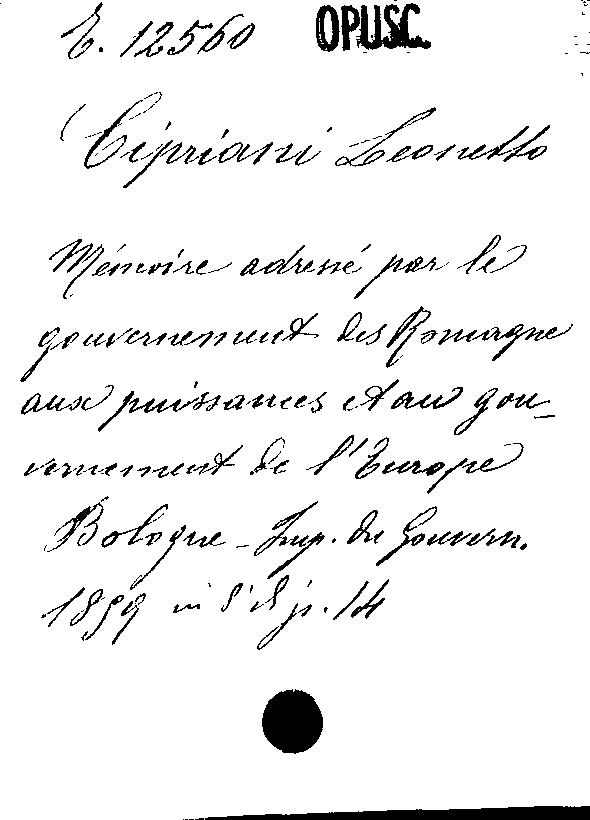 E. 12560 OPUSC.
Cipriani Leonetto
Mémoire adressé par le
gouvernement des Romagne
aux puissances et au gou-
vernement de l'Europe
Bologne - Imp. du Gouvern.
1859 in 8° p. 14